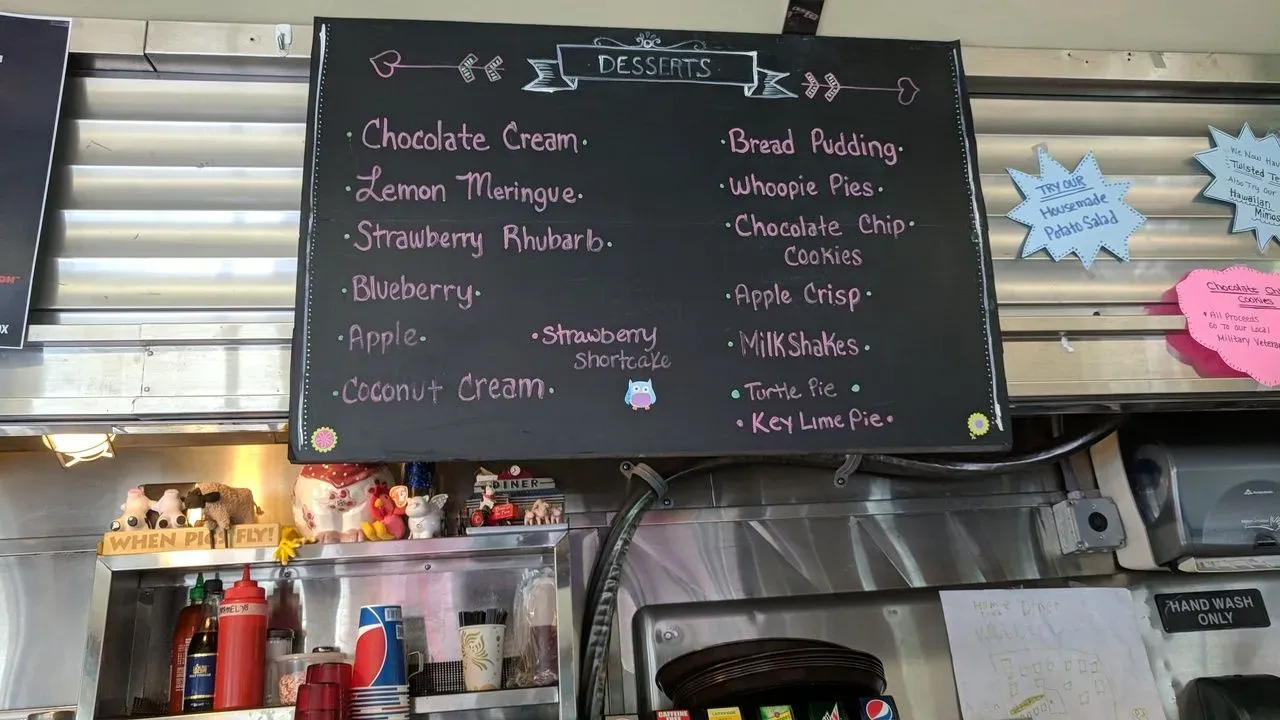 DESSERTS
Chocolate Cream
Lemon Meringue
Strawberry Rhubarb
Blueberry
Apple
Coconut Cream
Strawberry
Shortcake
Bread Pudding
Whoopie Pies
Chocolate Chip
Cookies
Apple Crisp
Milkshakes
Turtle Pie
Key Lime Pie
TRY OUR
Housemade
Potato Salad
We Now
Also Try Our
Hawaiian
Chocolate
Cookies
All Proceeds
Go To our Local
Military
DINER
WHEN PIGS FLY!
HAND WASH
ONLY
CAFFEINE
FREE